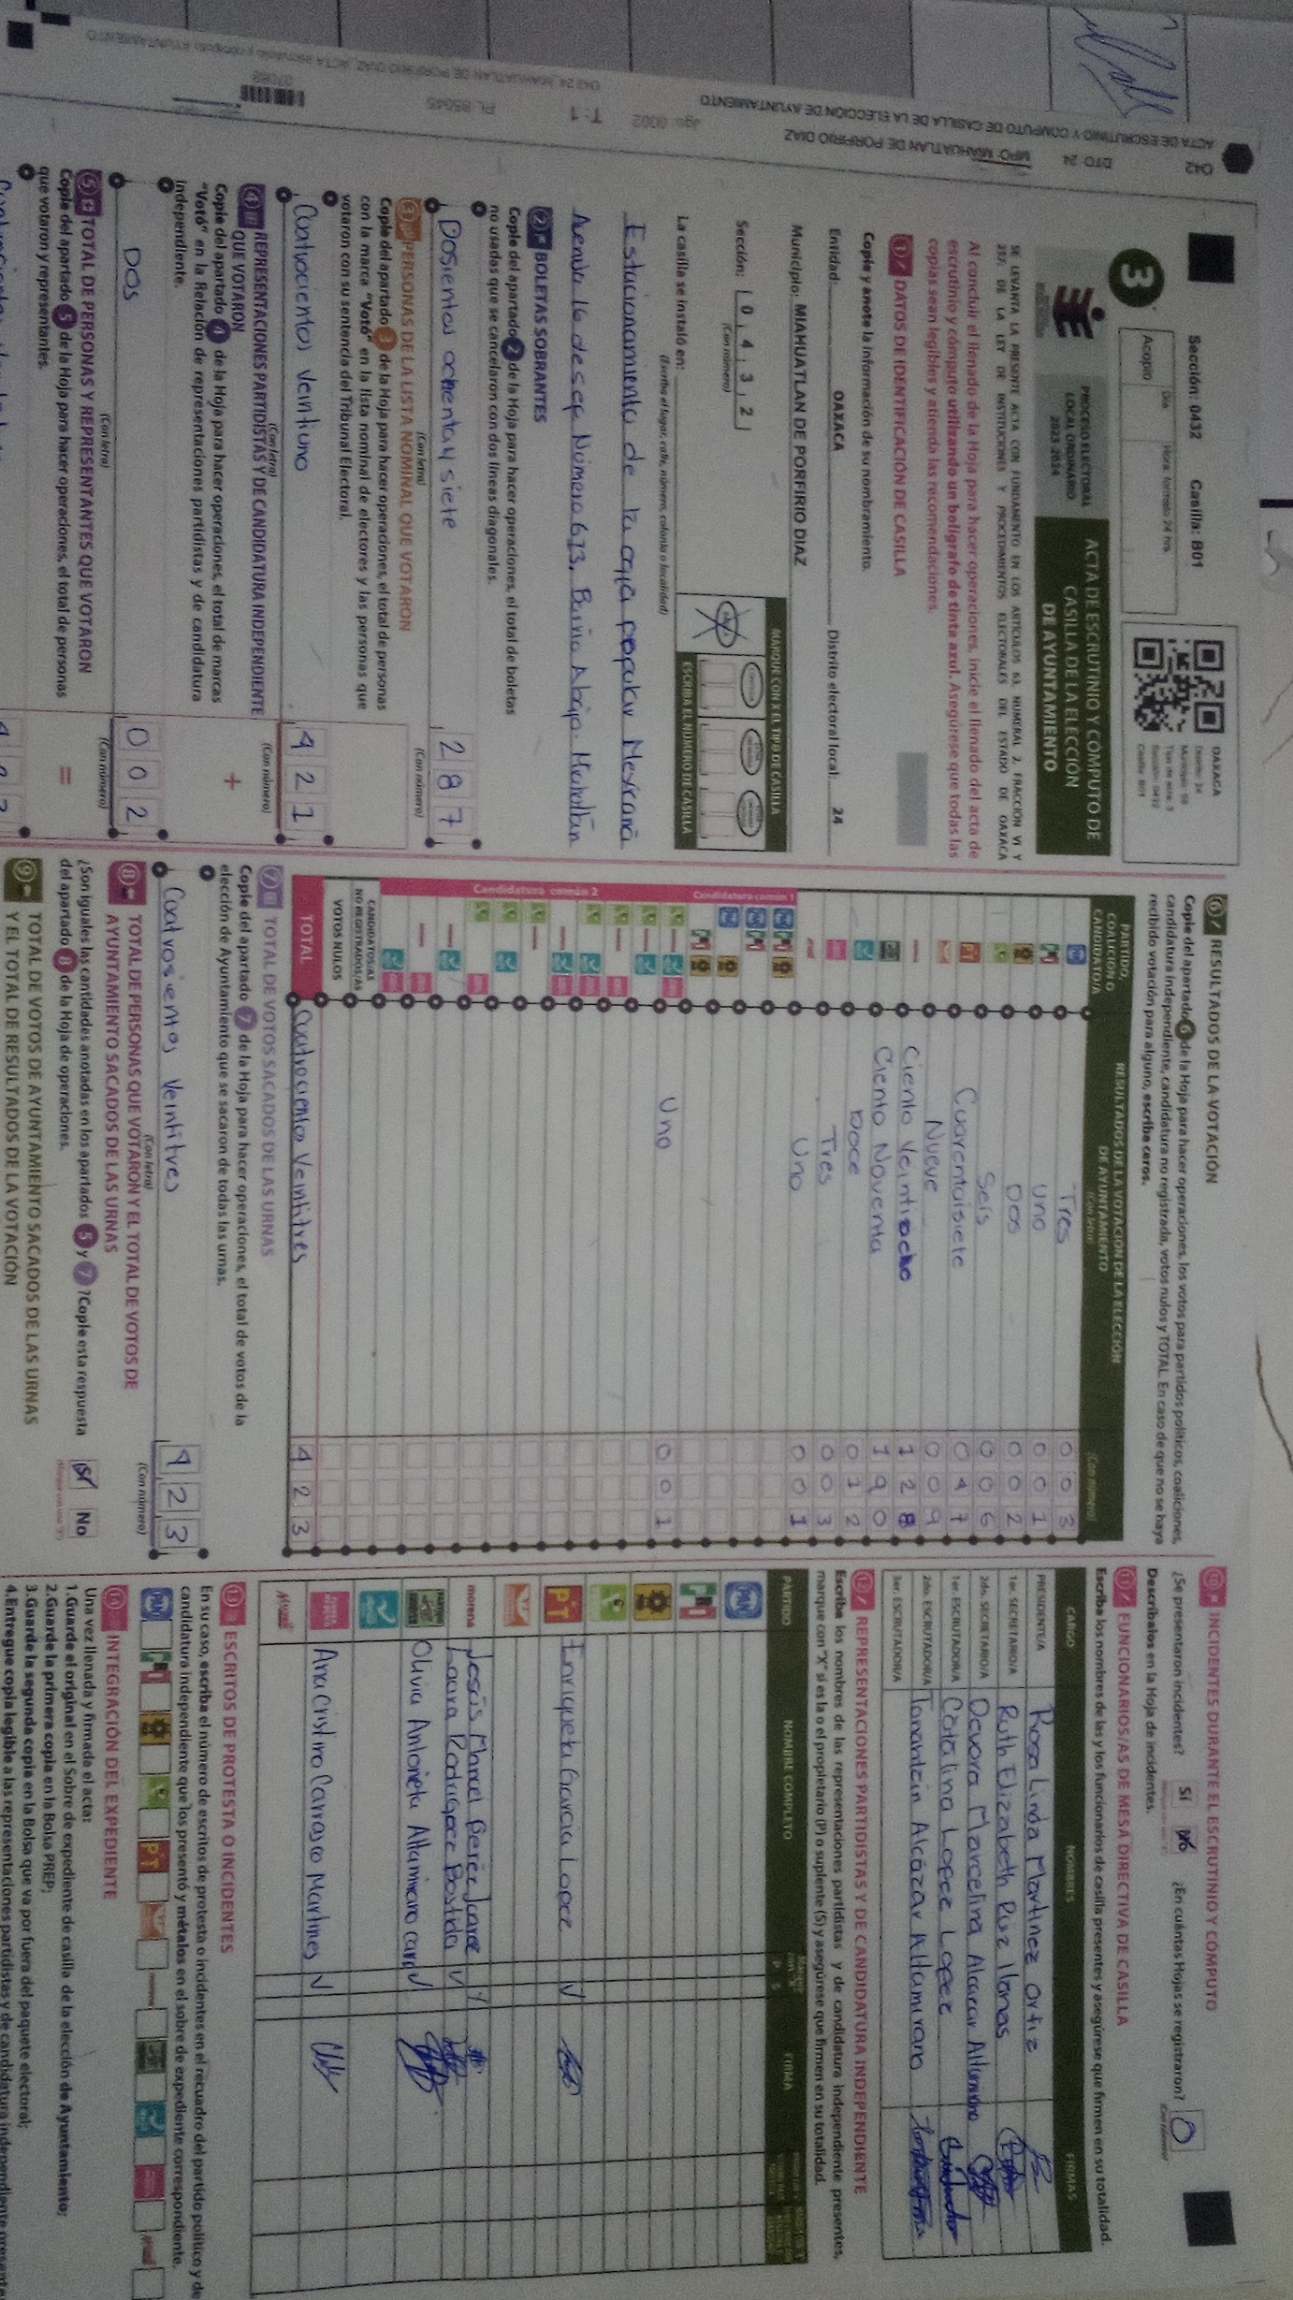 042
DTO: 24
MPO: MIAHUATLAN DE PORFIRIO DIAZ
ACTA DE ESCRUTINIO Y COMPUTO DE CASILLA DE LA ELECCION DE AYUNTAMIENTO
T: 1
Sección: 0432 Casilla: B01
Día Hora: formato 24 hrs.
Acopio
OAXACA
3
PROCESO ELECTORAL
LOCAL ORDINARIO
2023 2024
ACTA DE ESCRUTINIO Y CÓMPUTO DE
CASILLA DE LA ELECCIÓN
DE AYUNTAMIENTO
SE LEVANTA LA PRESENTE ACTA CON FUNDAMENTO EN LOS ARTÍCULOS 63, NUMERAL 2, FRACCIÓN VI Y
237, DE LA LEY DE INSTITUCIONES Y PROCEDIMIENTOS ELECTORALES DEL ESTADO DE OAXACA
Al concluir el llenado de la Hoja para hacer operaciones, inicie el llenado del acta de
escrutinio y cómputo utilizando un bolígrafo de tinta azul. Asegúrese que todas las
copias sean legibles y atienda las recomendaciones.
1 DATOS DE IDENTIFICACIÓN DE CASILLA
Copie y anote la información de su nombramiento.
Entidad: OAXACA Distrito electoral local: 24
Municipio: MIAHUATLAN DE PORFIRIO DIAZ
MARQUE CON X EL TIPO DE CASILLA
Sección: 0 4 3 2
(Con número)
ESCRIBA EL NÚMERO DE CASILLA
La casilla se instaló en:
(Escriba el lugar, calle, número, colonia o localidad)
Estacionamiento de la caja popular Mexicana
Avenida 16 de sep Número 673. Barrio Abajo. Miahuatlan
2 BOLETAS SOBRANTES
Copie del apartado 2 de la Hoja para hacer operaciones, el total de boletas
no usadas que se cancelaron con dos líneas diagonales.
Dosientos ochenta y siete 2 8 7
(Con letra) (Con número)
3 PERSONAS DE LA LISTA NOMINAL QUE VOTARON
Copie del apartado 3 de la Hoja para hacer operaciones, el total de personas
con la marca "Votó" en la lista nominal de electores y las personas que
votaron con su sentencia del Tribunal Electoral.
Cuatrocientos veintiuno 4 2 1
(Con letra) (Con número)
4 REPRESENTACIONES PARTIDISTAS Y DE CANDIDATURA INDEPENDIENTE
QUE VOTARON
Copie del apartado 4 de la Hoja para hacer operaciones, el total de marcas
"Votó" en la Relación de representaciones partidistas y de candidatura
independiente.
+
DOS 0 0 2
(Con letra) (Con número)
5 TOTAL DE PERSONAS Y REPRESENTANTES QUE VOTARON
Copie del apartado 5 de la Hoja para hacer operaciones, el total de personas
que votaron y representantes.
=
6 RESULTADOS DE LA VOTACIÓN
Copie del apartado 6 de la Hoja para hacer operaciones, los votos para partidos políticos, coaliciones,
candidatura independiente, candidatura no registrada, votos nulos y TOTAL. En caso de que no se haya
recibido votación para alguno, escriba ceros.
PARTIDO,
COALICIÓN O
CANDIDATO/A
RESULTADOS DE LA VOTACIÓN DE LA ELECCIÓN
DE AYUNTAMIENTO
(Con letra) (Con número)
Tres 0 0 3
Uno 0 0 1
Dos 0 0 2
Seis 0 0 6
Cuarentaisiete 0 4 7
Nueve 0 0 9
Ciento Veintiocho 1 2 8
Ciento Noventa 1 9 0
Doce 0 1 2
Tres 0 0 3
Uno 0 0 1
Candidatura común 1
Uno 0 0 1
Candidatura común 2
CANDIDATOS/AS
NO REGISTRADOS/AS
VOTOS NULOS
TOTAL Cuatrocientos Veintitres 4 2 3
7 TOTAL DE VOTOS SACADOS DE LAS URNAS
Copie del apartado 7 de la Hoja para hacer operaciones, el total de votos de la
elección de Ayuntamiento que se sacaron de todas las urnas.
Cuatrosientos Veintitres 4 2 3
(Con letra) (Con número)
8 TOTAL DE PERSONAS QUE VOTARON Y EL TOTAL DE VOTOS DE
AYUNTAMIENTO SACADOS DE LAS URNAS
¿Son iguales las cantidades anotadas en los apartados 5 y 7? Copie esta respuesta
del apartado 8 de la Hoja de operaciones.
Sí No
9 TOTAL DE VOTOS DE AYUNTAMIENTO SACADOS DE LAS URNAS
Y EL TOTAL DE RESULTADOS DE LA VOTACIÓN
10 INCIDENTES DURANTE EL ESCRUTINIO Y CÓMPUTO
¿Se presentaron incidentes? Sí No ¿En cuántas Hojas se registraron? 0
Descríbalos en la Hoja de incidentes.
11 FUNCIONARIOS/AS DE MESA DIRECTIVA DE CASILLA
Escriba los nombres de las y los funcionarios de casilla presentes y asegúrese que firmen en su totalidad.
CARGO NOMBRES FIRMAS
PRESIDENTE/A Rosa Linda Martinez Ortiz
1er. SECRETARIO/A Ruth Elizabeth Ruiz Llanas
2do. SECRETARIO/A Devora Marcelina Alcazar Altamirano
1er. ESCRUTADOR/A Catalina Lopez Lopez
2do. ESCRUTADOR/A Tonantzin Alcázar Altamirano
3er. ESCRUTADOR/A
12 REPRESENTACIONES PARTIDISTAS Y DE CANDIDATURA INDEPENDIENTE
Escriba los nombres de las representaciones partidistas y de candidatura independiente presentes,
marque con "X" si es la o el propietario (P) o suplente (S) y asegúrese que firmen en su totalidad.
PARTIDO NOMBRE COMPLETO P S FIRMA
PAN
PT Enriqueta Garcia Lopez
morena Jesús Manuel Pérez Juarez
Laura Rodriguez Bastida
Olivia Antonieta Altamirano
Ana Cristina Carrasco Martines
13 ESCRITOS DE PROTESTA O INCIDENTES
En su caso, escriba el número de escritos de protesta o incidentes en el recuadro del partido político y de
candidatura independiente que los presentó y métalos en el sobre de expediente correspondiente.
14 INTEGRACIÓN DEL EXPEDIENTE
Una vez llenada y firmada el acta:
1.Guarde el original en el Sobre de expediente de casilla de la elección de Ayuntamiento;
2.Guarde la primera copia en la Bolsa PREP;
3.Guarde la segunda copia en la Bolsa que va por fuera del paquete electoral;
4.Entregue copia legible a las representaciones partidistas y de candidatura independiente